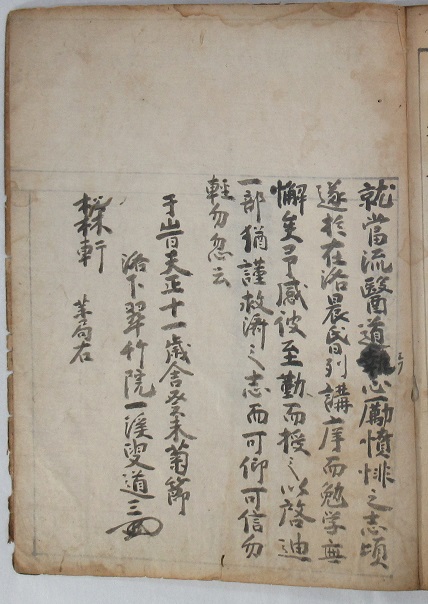 就當流醫道執心励憤悱之志頃
遂於在洛晨昏列講庠而勉学無
懈矣予感彼至勤而授之以啓迪
一部猶謹救濟之志而可仰可信勿
軽勿忽云
于旹天正十一歳舎癸未菊節
洛下翠竹院一渓叟道三
軒
几右